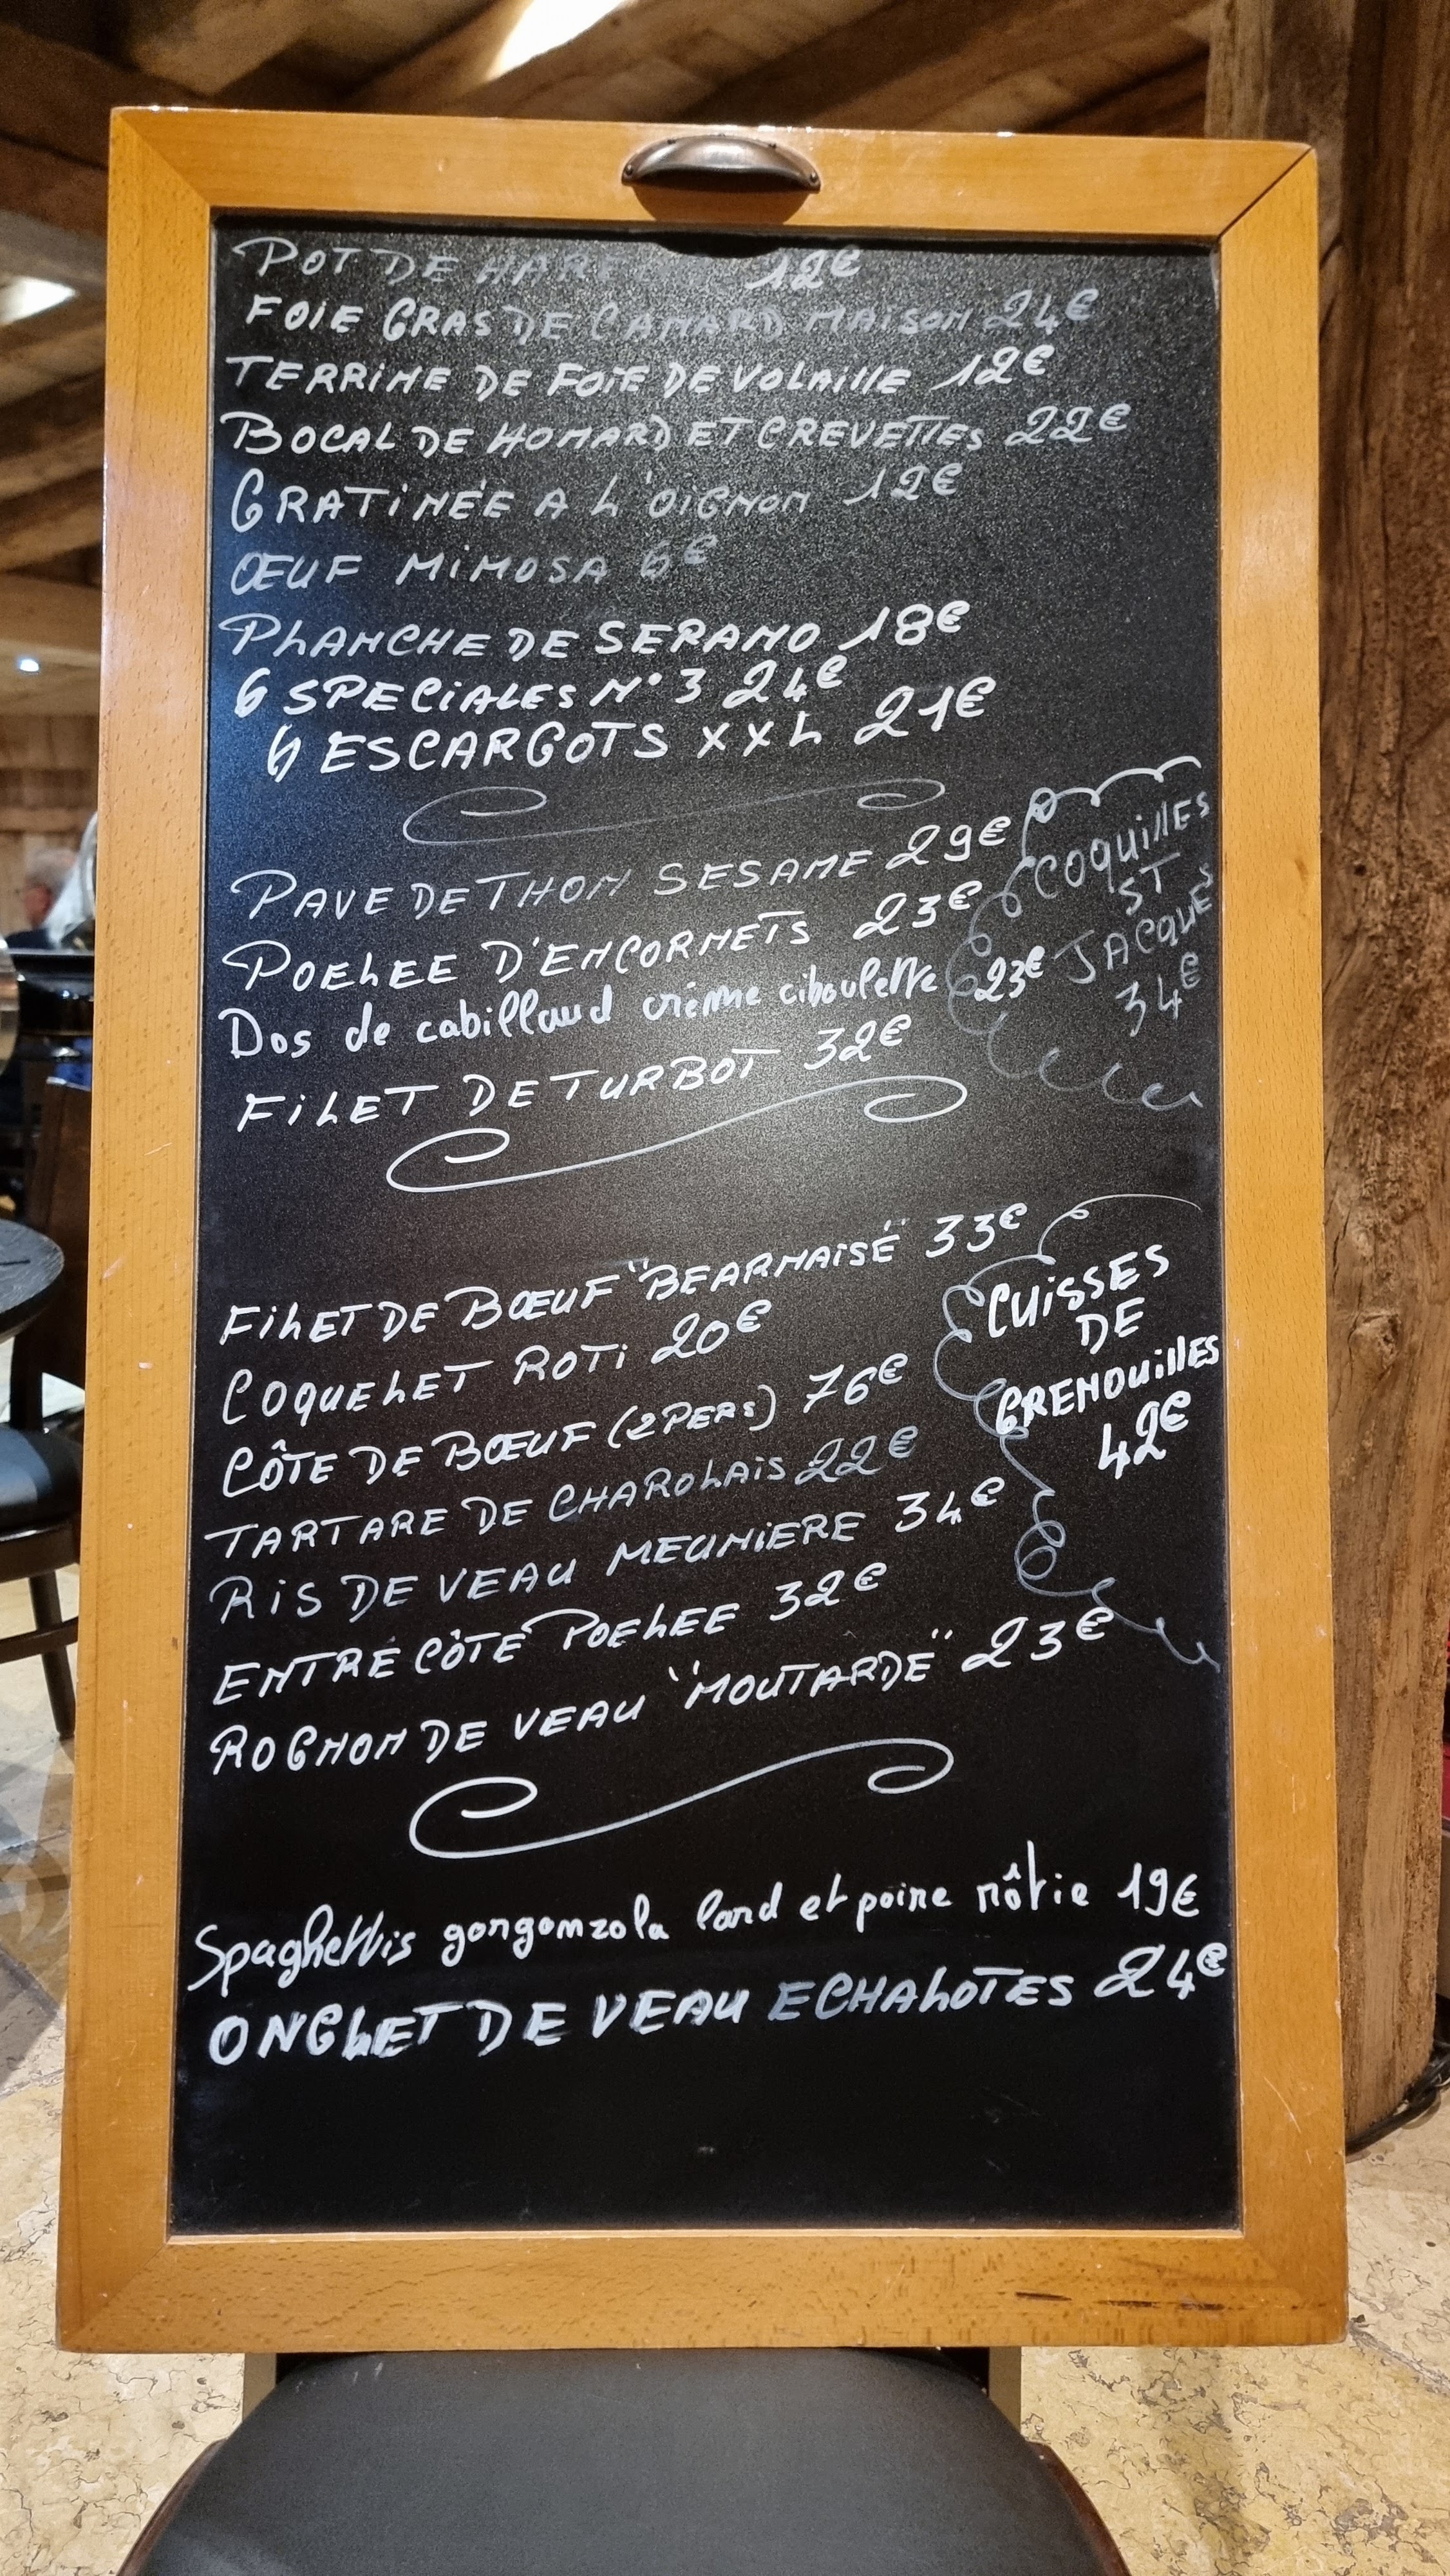 POT DE HARENG 12€
FOIE GRAS DE CANARD MAISON 24€
TERRINE DE FOIE DE VOLAILLE 12€
BOCAL DE HOMARD ET CREVETTES 22€
GRATINÉE A L'OIGNON 12€
ŒUF MIMOSA 6€
PLANCHE DE SERANO 18€
6 SPECIALES N°3 24€
6 ESCARGOTS XXL 21€
PAVE DE THON SESAME 29€
POELEE D'ENCORNETS 23€
Dos de cabillaud crème ciboulette 23€
FILET DE TURBOT 32€
COQUILLES
ST
JACQUES
34€
FILET DE BŒUF "BEARNAISE" 33€
COQUELET ROTI 20€
CÔTE DE BŒUF (2PERS) 76€
TARTARE DE CHAROLAIS 22€
RIS DE VEAU MEUNIERE 34€
ENTRE CÔTE POELEE 32€
ROGNON DE VEAU "MOUTARDE" 23€
CUISSES
DE
GRENOUILLES
42€
Spaghettis gorgonzola lard et poire rôtie 19€
ONGLET DE VEAU ECHALOTES 24€